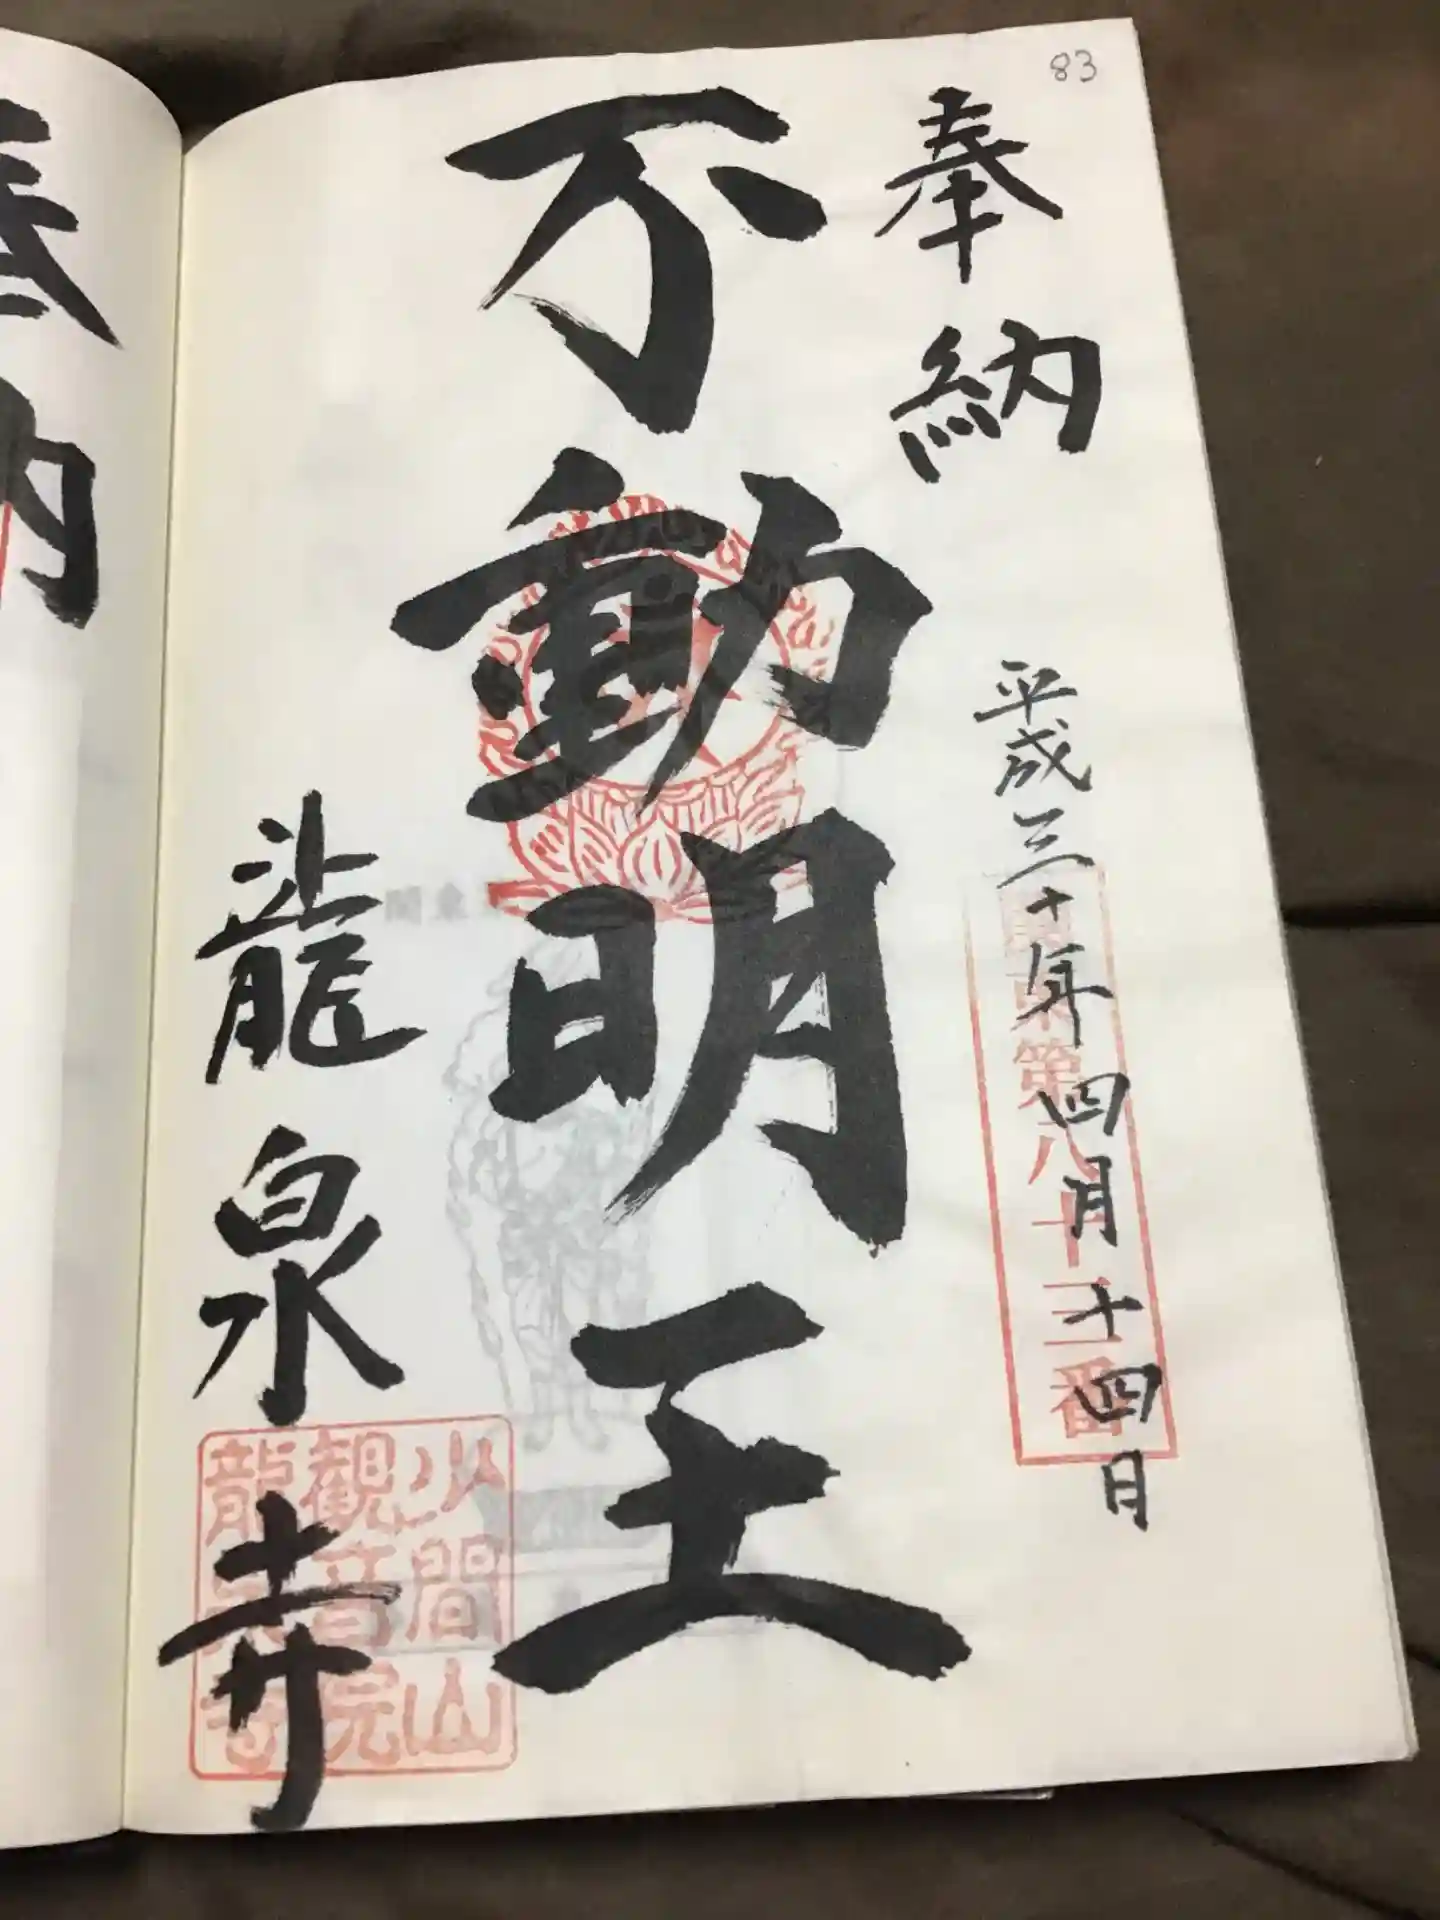 83
奉納
平成三十年四月十四日
東第八十三番
不動明王
関東
龍泉寺
小間山
観音院
龍泉寺
奉納